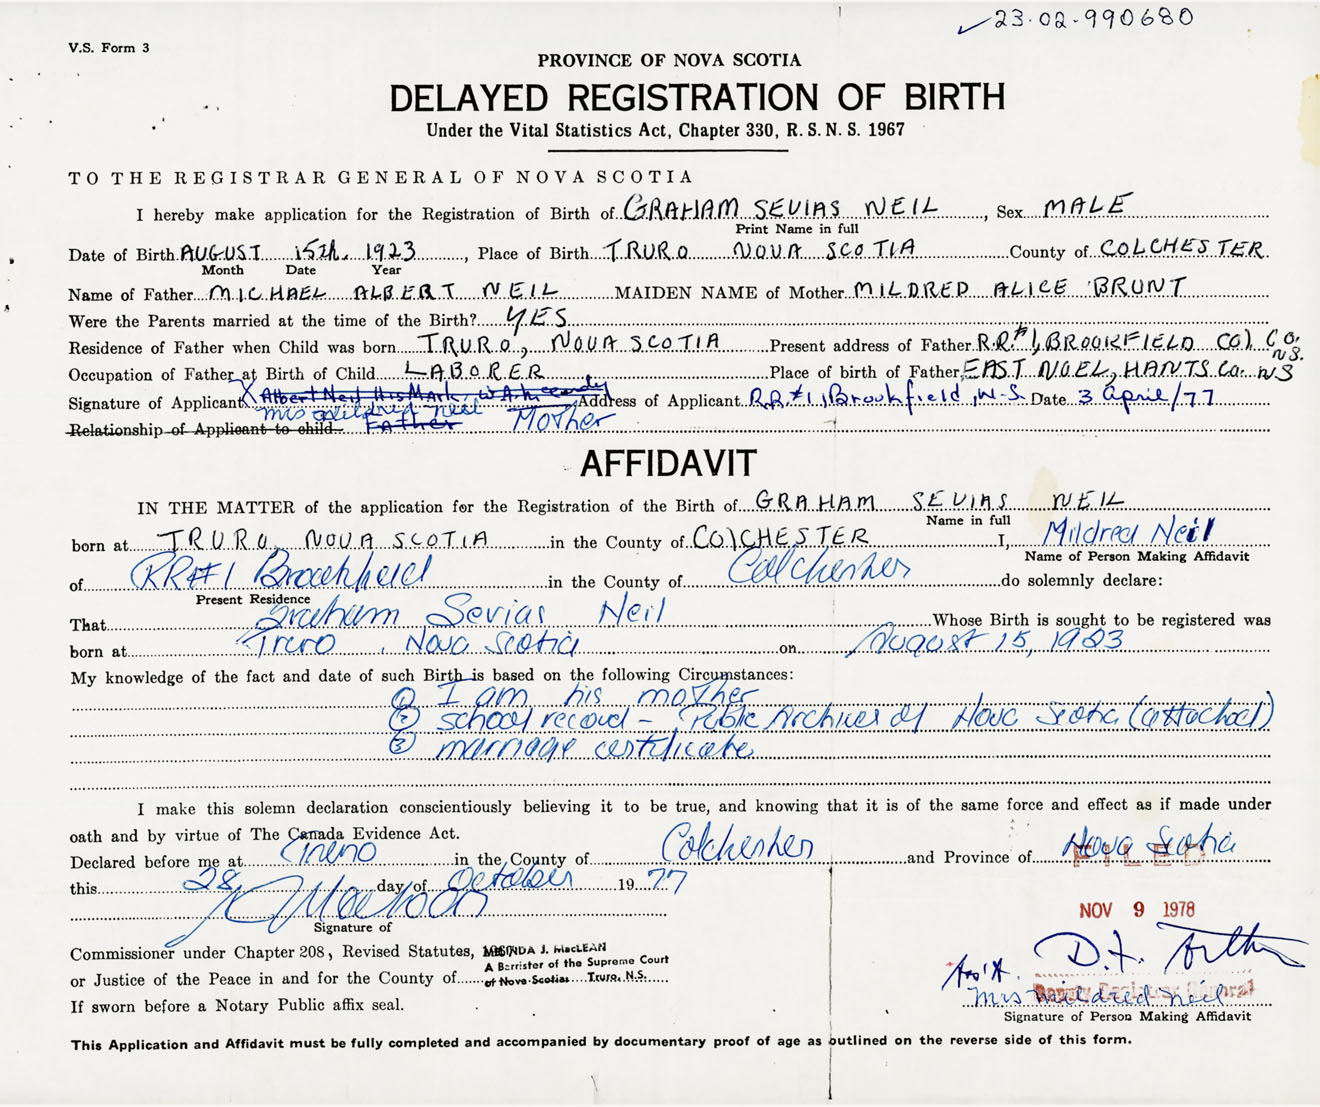 23-02-990680
V.S. Form 3
PROVINCE OF NOVA SCOTIA
DELAYED REGISTRATION OF BIRTH
Under the Vital Statistics Act, Chapter 330, R.S.N.S. 1967
TO THE REGISTRAR GENERAL OF NOVA SCOTIA
I hereby make application for the Registration of Birth of GRAHAM SEVIAS NEIL, Sex MALE
Print Name in full
Date of Birth AUGUST 15th, 1923, Place of Birth TRURO NOVA SCOTIA County of COLCHESTER
Month Date Year
Name of Father MICHAEL ALBERT NEIL MAIDEN NAME of Mother MILDRED ALICE BRUNT
Were the Parents married at the time of the Birth? YES
Residence of Father when Child was born TRURO, NOVA SCOTIA Present address of Father R.R.#1, BROOKFIELD COl CO. N.S.
Occupation of Father at Birth of Child LABORER Place of birth of Father EAST NOEL, HANTS CO. NS
Signature of Applicant X Albert Neil His Mark Address of Applicant R.R.#1, Brookfield, N.S. Date 3 April/77
Mrs Mildred Neil
Relationship of Applicant to child Father Mother
AFFIDAVIT
IN THE MATTER of the application for the Registration of the Birth of GRAHAM SEVIAS NEIL
Name in full
born at TRURO, NOVA SCOTIA in the County of COlCHESTER I, Mildred Neil
Name of Person Making Affidavit
of RR#1 Brookfield in the County of Colchester do solemnly declare:
Present Residence
That Graham Sevias Neil Whose Birth is sought to be registered was
born at Truro, Nova Scotia on August 15, 1923
My knowledge of the fact and date of such Birth is based on the following Circumstances:
① I am his mother
② school record - Public Archives of Nova Scotia (attached)
③ marriage certificate
I make this solemn declaration conscientiously believing it to be true, and knowing that it is of the same force and effect as if made under
oath and by virtue of The Canada Evidence Act.
Declared before me at Truro in the County of Colchester and Province of Nova Scotia
FILED
this 28 day of October 1977
NOV 9 1978
Signature of
Commissioner under Chapter 208, Revised Statutes,
J. MacLEAN
A Barrister of the Supreme Court
or Justice of the Peace in and for the County of
of Nova Scotia Truro, N.S.
Ass't.
Deputy Registrar General
Mrs Mildred Neil
If sworn before a Notary Public affix seal.
Signature of Person Making Affidavit
This Application and Affidavit must be fully completed and accompanied by documentary proof of age as outlined on the reverse side of this form.